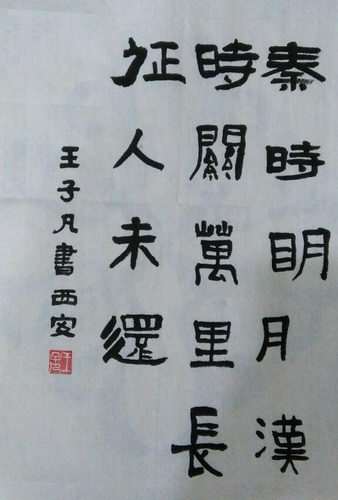 秦時明月漢
時關萬里長
征人未還
王子凡書西安